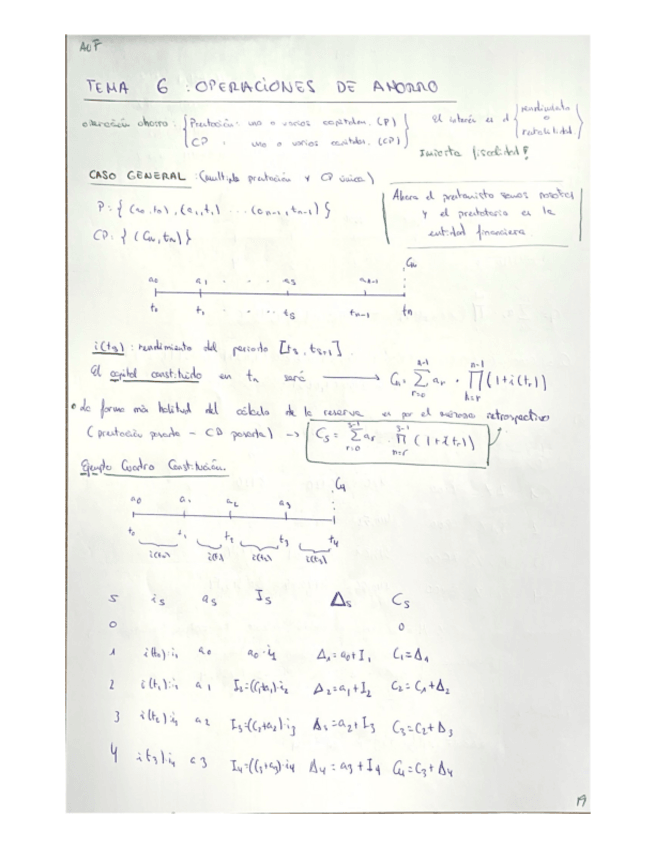 AOF
TEMA 6 : OPERACIONES DE AHORRO
operación ahorro : { Prestación: uno o varios capitales. (P)
CP : uno o varios capitales (CP) }
El interés es el { rendimiento o rentabilidad. }
fiscalidad!
CASO GENERAL : (multiple prestación y CP única)
Ahora el prestamista somos nosotros
y el prestatario es la
entidad financiera
P: { (a0, t0), (a1, t1) ... (an-1, tn-1) }
CP: { (Cn, tn) }
Cn
a0 a1 . . . as an-1
t0 t1 . . . ts tn-1 tn
i(ts) : rendimiento del periodo [ts, ts+1].
El capital constituido en tn será → Cn = Σ ar · Π (1+i(th))
n-1 r=0 n-1 h=r
• La forma más habitual del cálculo de la reserva es por el método retrospectivo
(prestación pasada - CP pasada) → Cs = Σ ar · Π (1+i(th))
s-1 r=0 s-1 h=r
Ejemplo Cuadro Constitución.
C4
a0 a1 a2 a3
t0 t1 t2 t3 t4
i(t0) i(t1) i(t2) i(t3)
S is as Is Δs Cs
0 0
1 i(t0)=i1 a0 a0·i1 Δ1=a0+I1 C1=Δ1
2 i(t1)=i2 a1 I2=(C1+a1)·i2 Δ2=a1+I2 C2=C1+Δ2
3 i(t2)=i3 a2 I3=(C2+a2)·i3 Δ3=a2+I3 C3=C2+Δ3
4 i(t3)=i4 a3 I4=(C3+a3)·i4 Δ4=a3+I4 C4=C3+Δ4
19